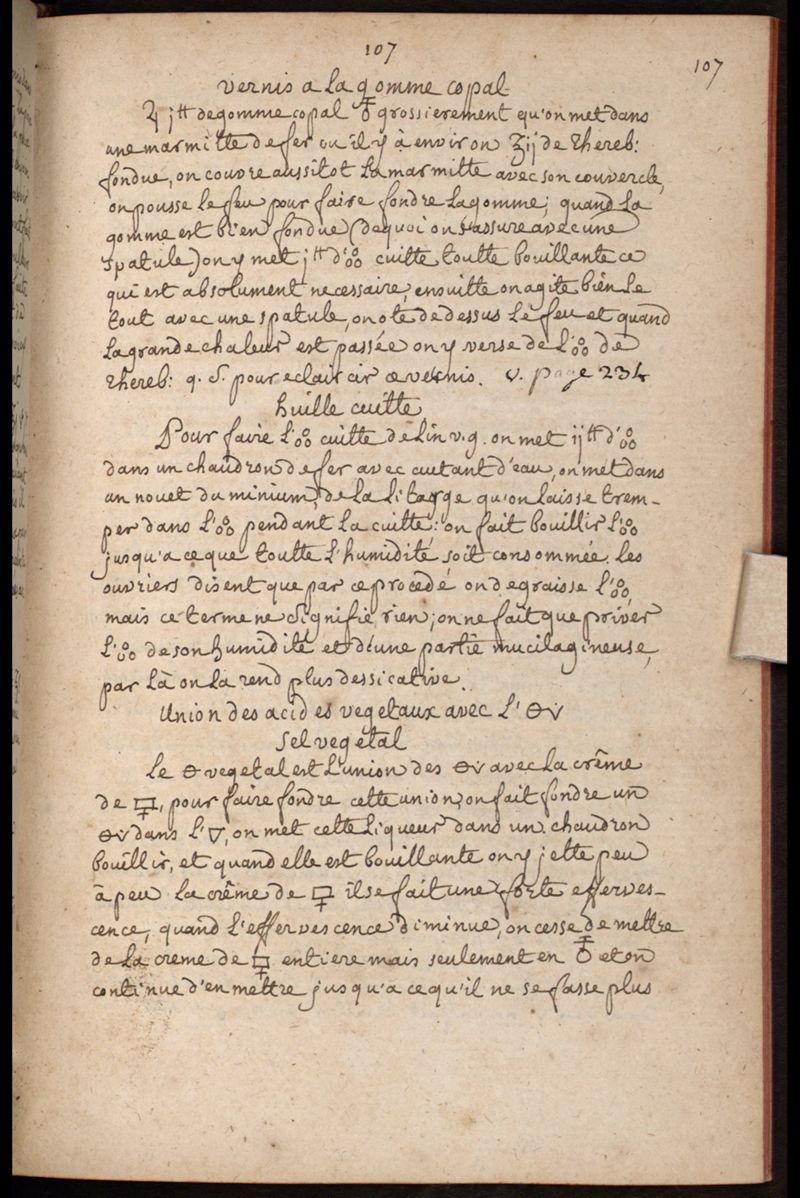 107
107
vernis a la gomme copal
de gomme copal grossierement qu'on met dans
une marmitte de fer ou il y à environ ℥ij de thereb:
fondue, on couvre aussitot la marmitte avec son couvercle,
on pousse le feu pour faire fondre la gomme; quand la
gomme est bien fondue (de quoi on s'assure avec une
spatule) on y met j ʰ d'o°o cuitte toutte bouillante ce
qui est absolument necessaire, ensuitte on agite bien le
tout avec une spatule, on ote de dessus le feu et quand
la grande chaleur est passée on y verse de l'o°o de
thereb: q. S. pour eclaircir ce vernis. V. page 234
huille cuitte
Pour faire l'o°o cuitte de lin v.g. on met ij ʰ d'o°o
dans un chaudron de fer avec autant d'eau, on met dans
un nouet du minium, de la litarge qu'on laisse trem-
per dans l'o°o pendant la cuitte: on fait bouillir l'o°o
jusqu'a ce que toutte l'humidité soit consommée. les
ouvriers disent que par ce procédé on degraisse l'o°o,
mais ce terme ne signifie rien; on ne fait que priver
l'o°o de son humidité et d'une partie mucilagineuse,
par là on la rend plus dessicative.
Union des acides vegetaux avec l'🜔
Sel vegetal
Le vegetal est l'union des avec la crême
de 🜿, pour faire fondre cette union, on fait fondre un
dans l'🜄, on met cette liqueur dans un chaudron
bouillir, et quand elle est bouillante on y jette peu
à peu la crême de 🜿 il se fait une forte efferves-
cence, quand l'effervescence diminue, on cesse de mettre
de la creme de 🜿 entiere mais seulement en et on
continue d'en mettre jusqu'a ce qu'il ne se fasse plus